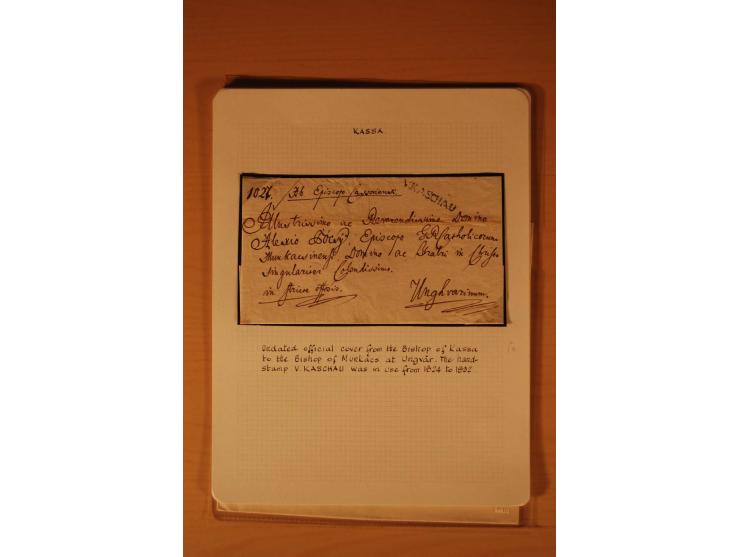 KASSA
1026. Ab Episcopo Cassoviensi
V.KASCHAU
Illustrissimo ac Reverendissimo Domino
Alexio Pócsy Episcopo G.R.Catholicorum
Munkacsinensi Domino ac Fratri in Christo
singulariter Colendissimo.
in officio Unghvarinum.
Undated official cover from the Bishop of Kassa
to the Bishop of Munkács at Ungvár. The hand-
stamp V. KASCHAU was in use from 1824 to 1832